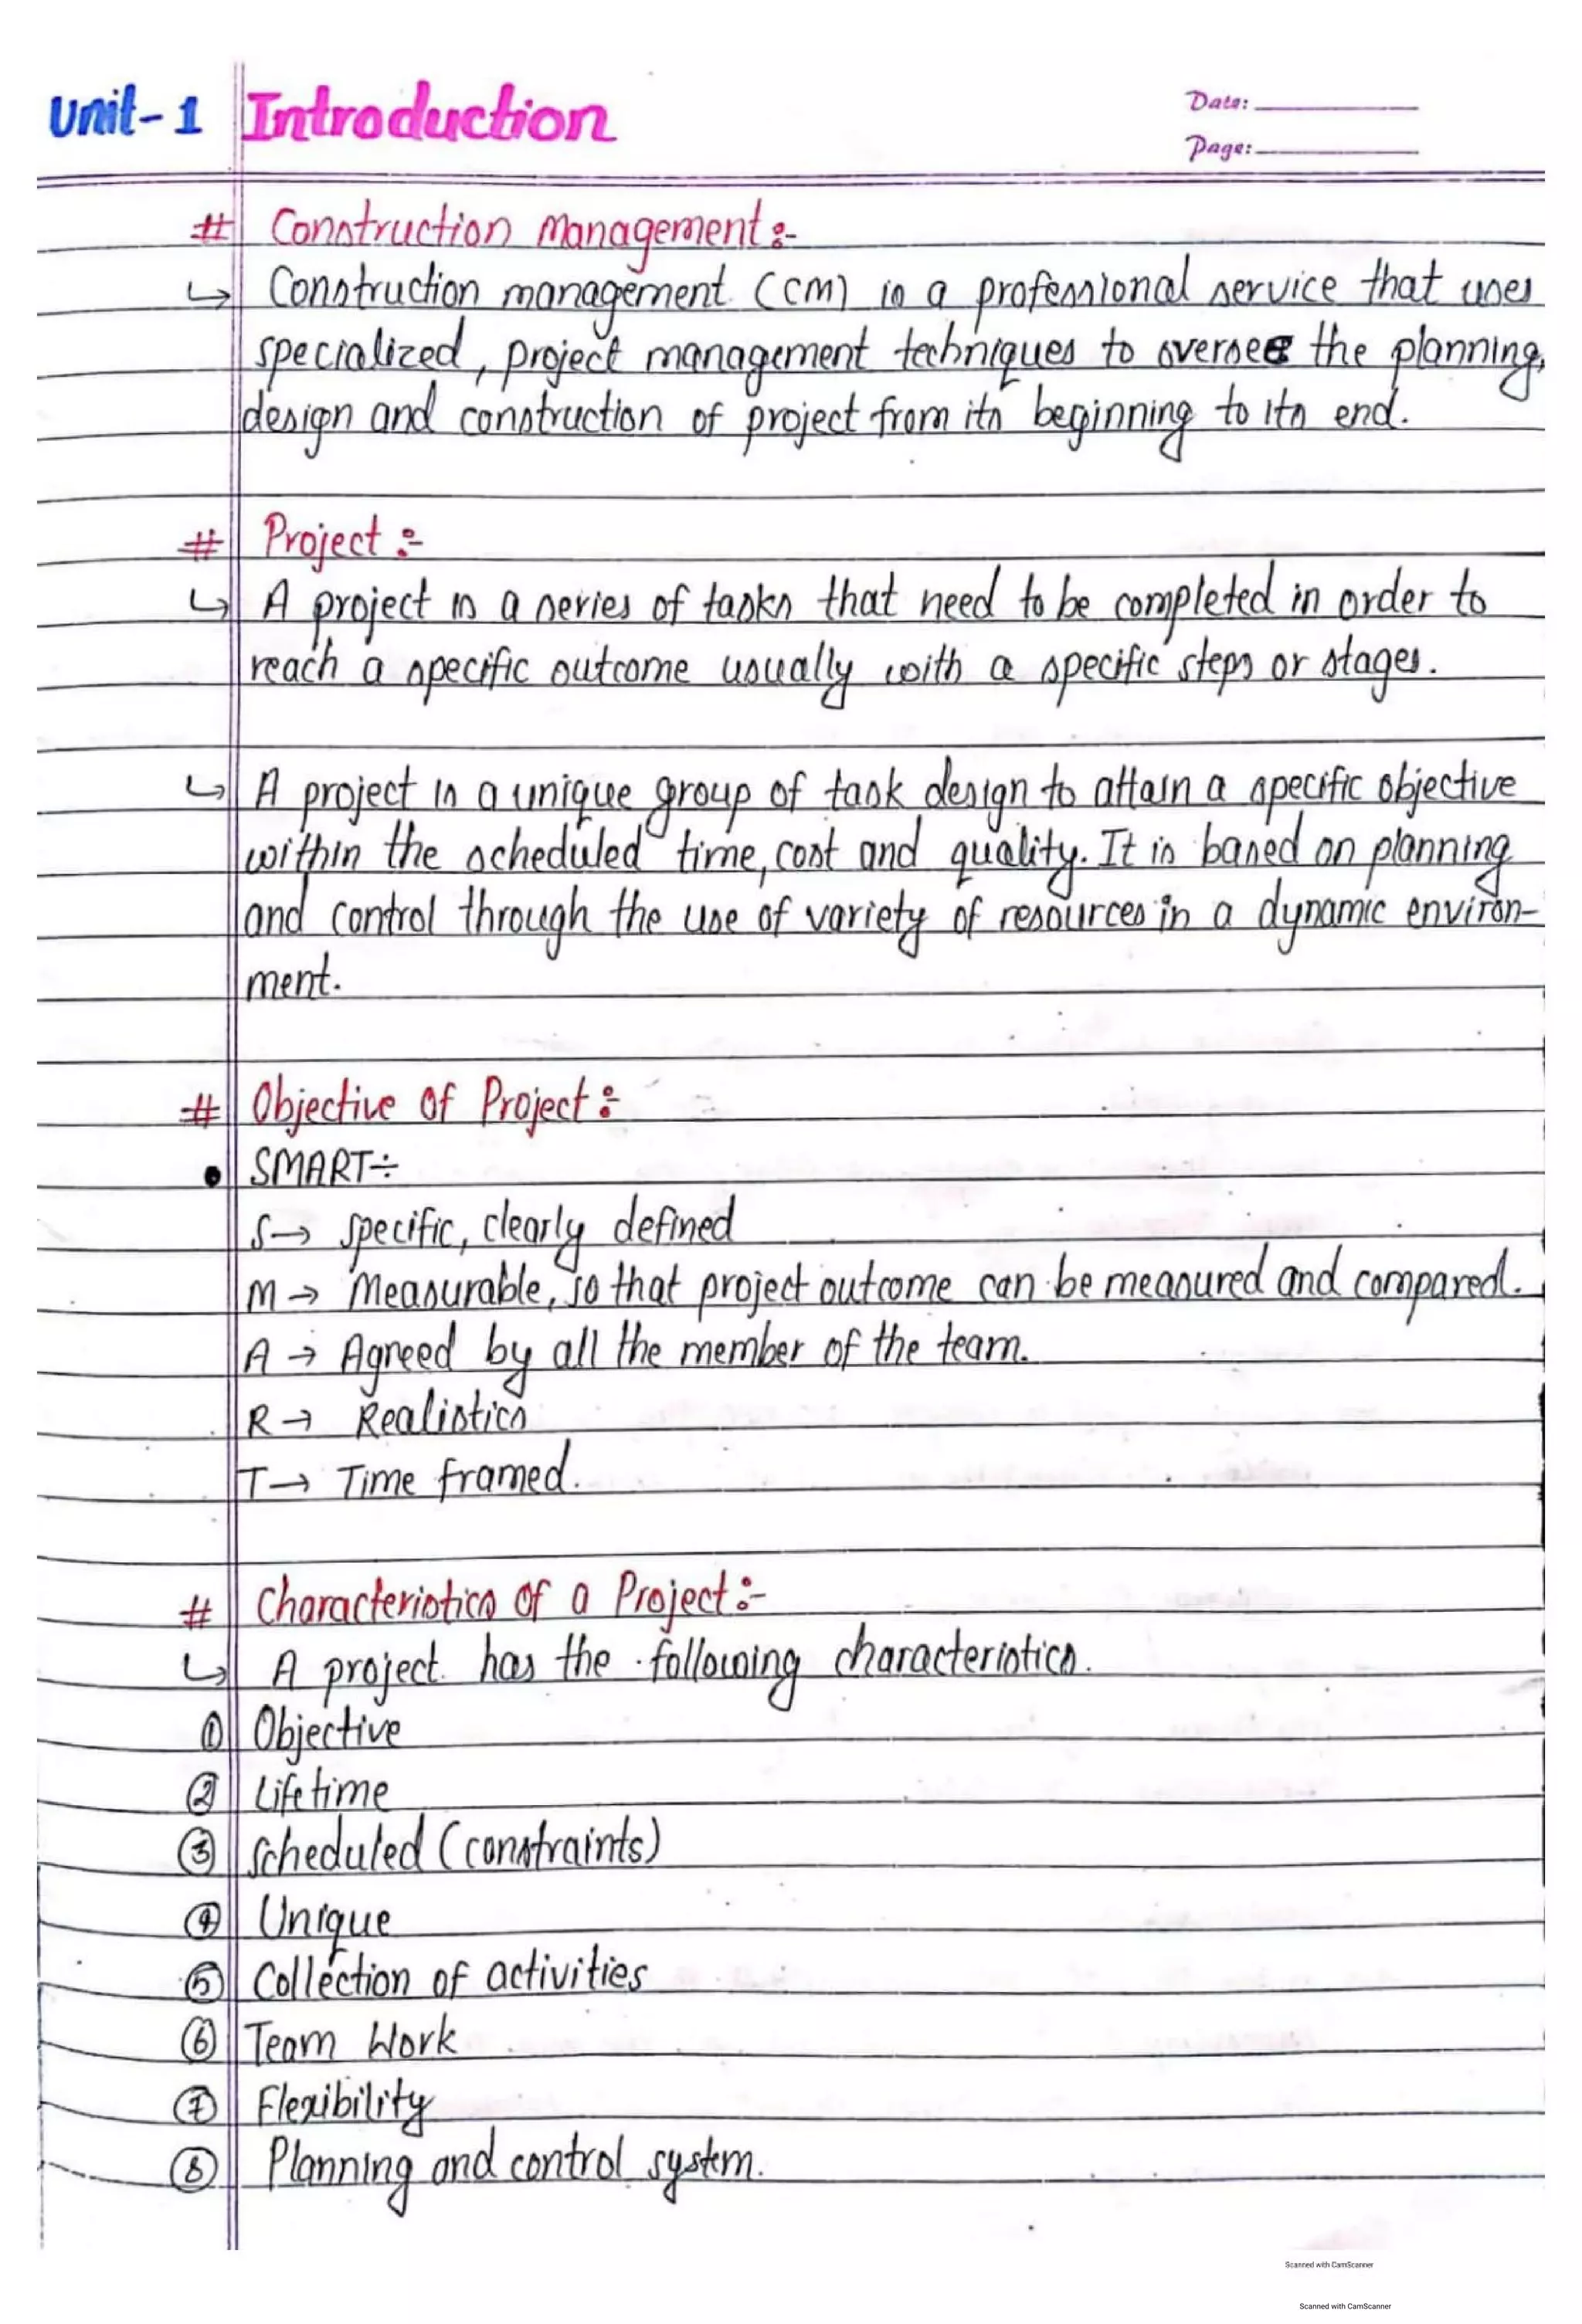 Unit-1 Introduction
Date:
Page:
# Construction Management:-
↳ Construction management (CM) is a professional service that uses
specialized, project management techniques to oversee the planning,
design and construction of project from its beginning to its end.
# Project :-
↳ A project is a series of tasks that need to be completed in order to
reach a specific outcome usually with a specific steps or stages.
↳ A project is a unique group of task design to attain a specific objective
within the scheduled time, cost and quality. It is based on planning
and control through the use of variety of resources in a dynamic environ-
ment.
# Objective of Project:-
• SMART÷
S→ Specific, clearly defined
M→ Measurable, so that project outcome can be measured and compared.
A → Agreed by all the member of the team.
R→ Realistics
T→ Time framed.
# Characteristics of a Project:-
↳ A project has the following characteristics.
① Objective
② Lifetime
③ Scheduled (constraints)
④ Unique
⑤ Collection of activities
⑥ Team Work
⑦ Flexibility
⑧ Planning and control system.
Scanned with CamScanner
Scanned with CamScanner